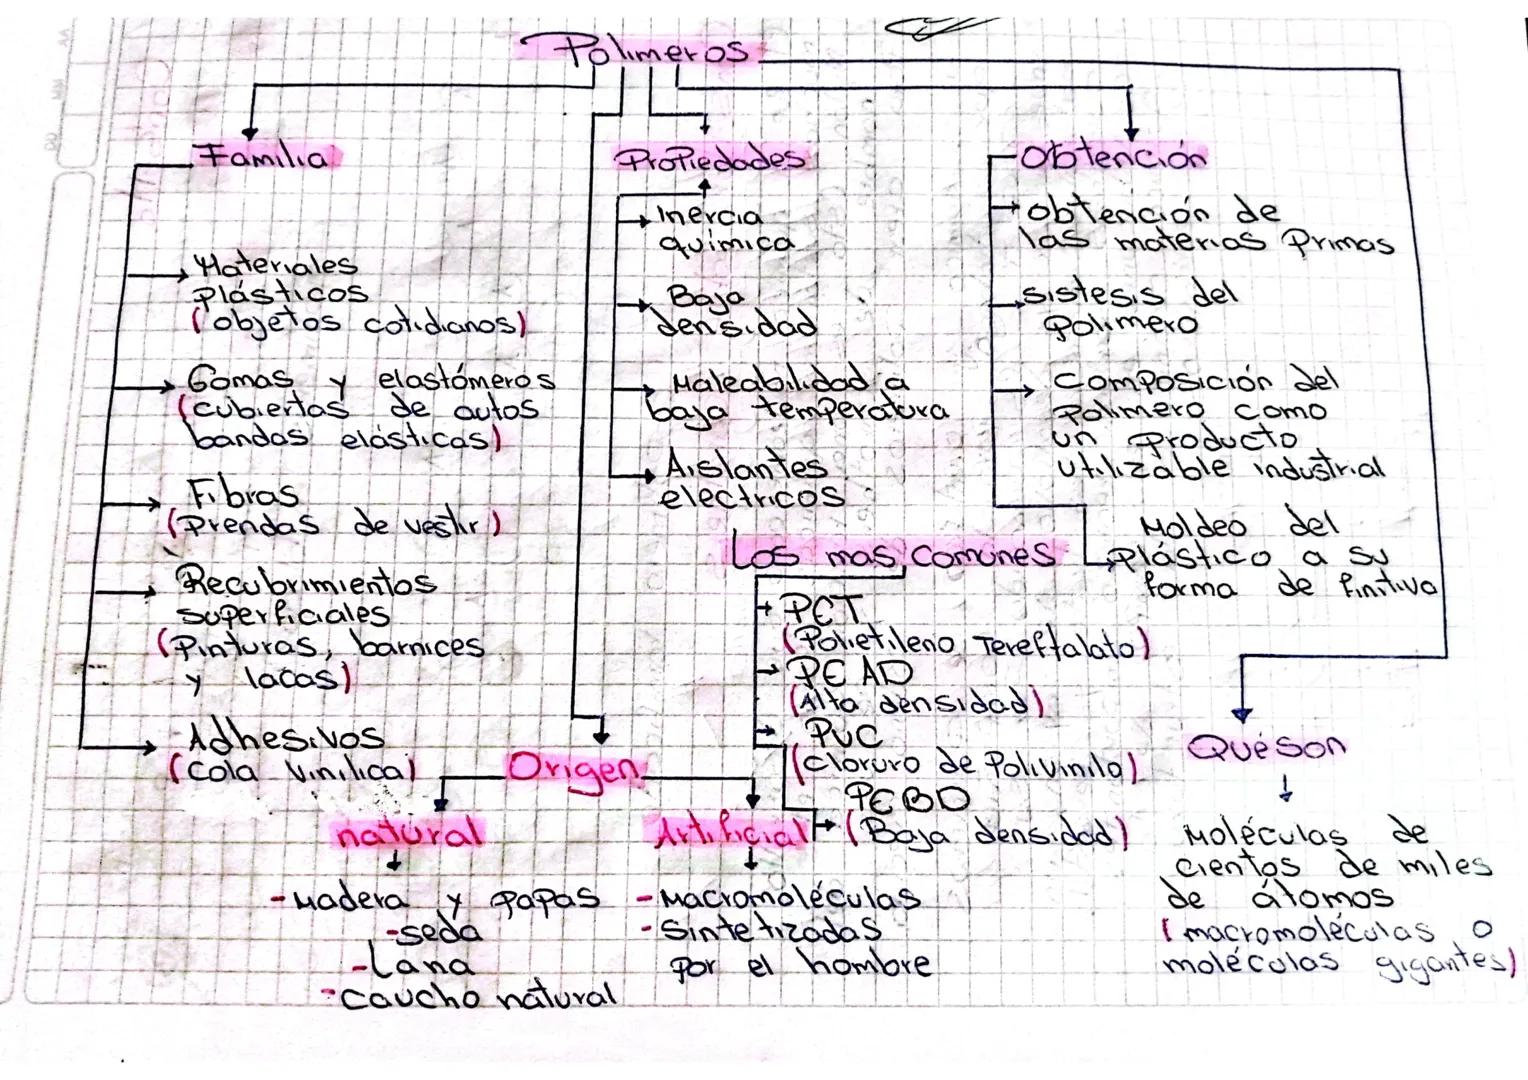 Polimeros
Familia
Materiales
plásticos
(objetos cotidianos)
Gomas y elastómeros
(cubiertas de autos
bandas elásticas)
Fibras
(Prendas de vestir)
Recubrimientos
superficiales
(Pinturas, barnices
y lacas)
Adhesivos
(cola vinilica)
Propiedades
Inercia
química
Baja
densidad
Maleabilidad a
baja temperatura
Aislantes
electricos
Obtención
obtención de
las materias Primas
sistesis del
polimero
Composición del
polimero como
un producto
utilizable industrial
Moldeo del
plástico a su
forma de finitiva
Los mas comunes
PET
(Polietileno Tereftalato)
PE AD
(Alta densidad)
PVC
(cloruro de Polivinilo)
PEBD
(Baja densidad)
Origen
natural
-Madera y papas
-seda
-Lana
-caucho natural
Artificial
-Macromoléculas
-Sintetizadas
por el hombre
Qué son
Moléculas de
cientos de miles
de átomos
(macromoléculas o
moléculas gigantes)